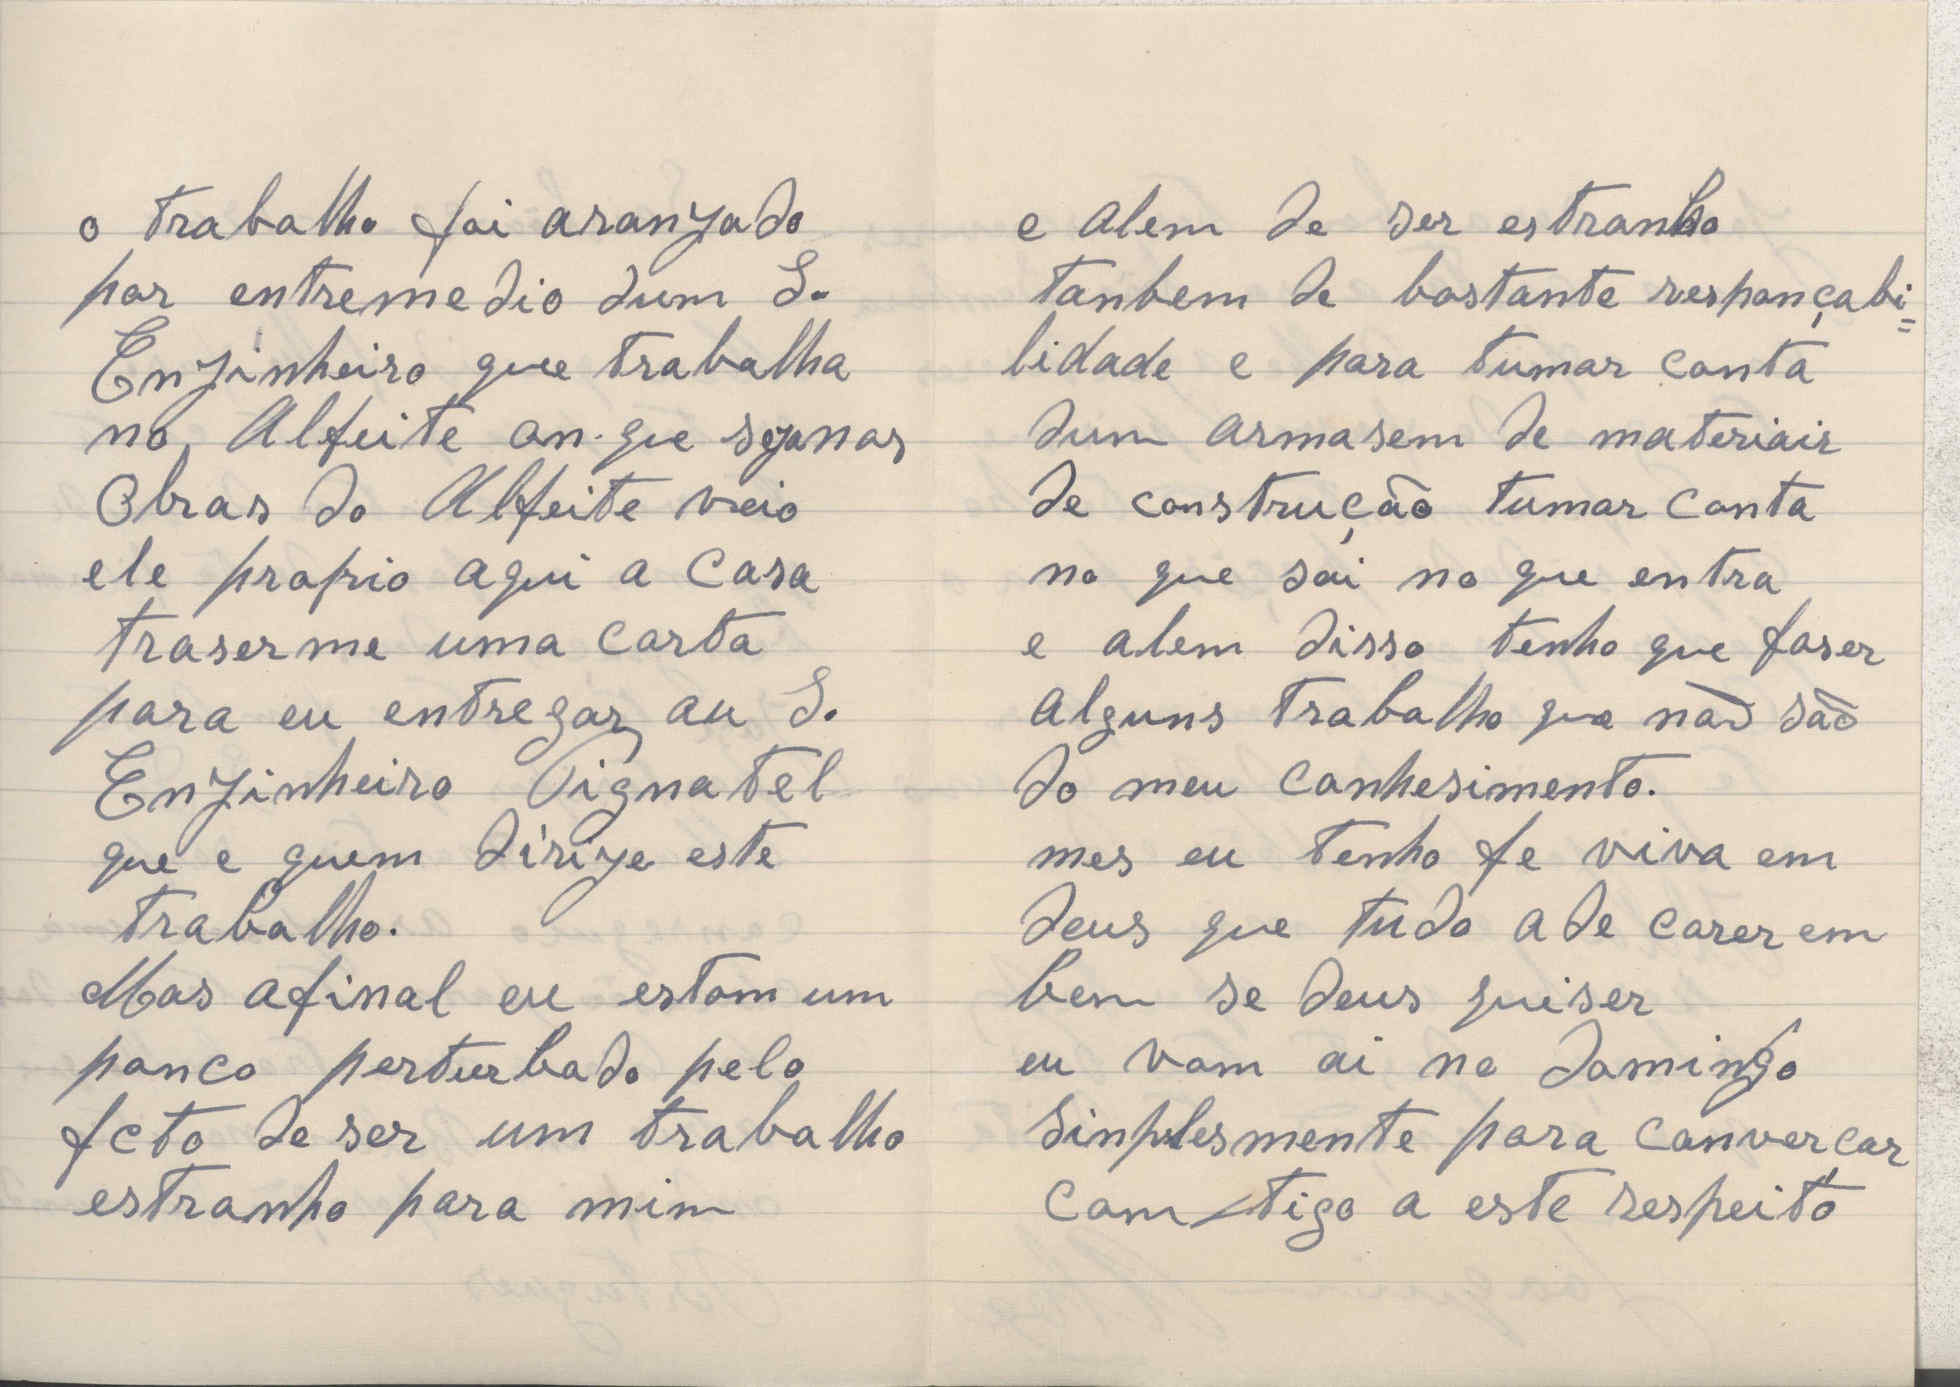 o trabalho foi aranjado
por entremedio dum S.
Enjinheiro que trabalha
no Alfeite ou que seja nas
Obras do Alfeite veio
ele proprio aqui a casa
traserme uma carta
para eu entregar au S.
Enjinheiro Pignatel
que e quem dirije este
trabalho.
Mas afinal eu estou um
pouco perturbado pelo
fcto de ser um trabalho
estranho para mim
e alem de ser estranho
tanbem de bastante responçabi=
lidade e para tumar conta
dum armasem de materiais
de construção tumar conta
no que sai no que entra
e alem disso tenho que faser
alguns trabalho que não são
do meu conhesimento.
mes eu tenho fe viva em
Deus que tudo a de corer em
bem se Deus quiser
eu vou ai no Domingo
Sinplesmente para convercar
com tigo a este respeito